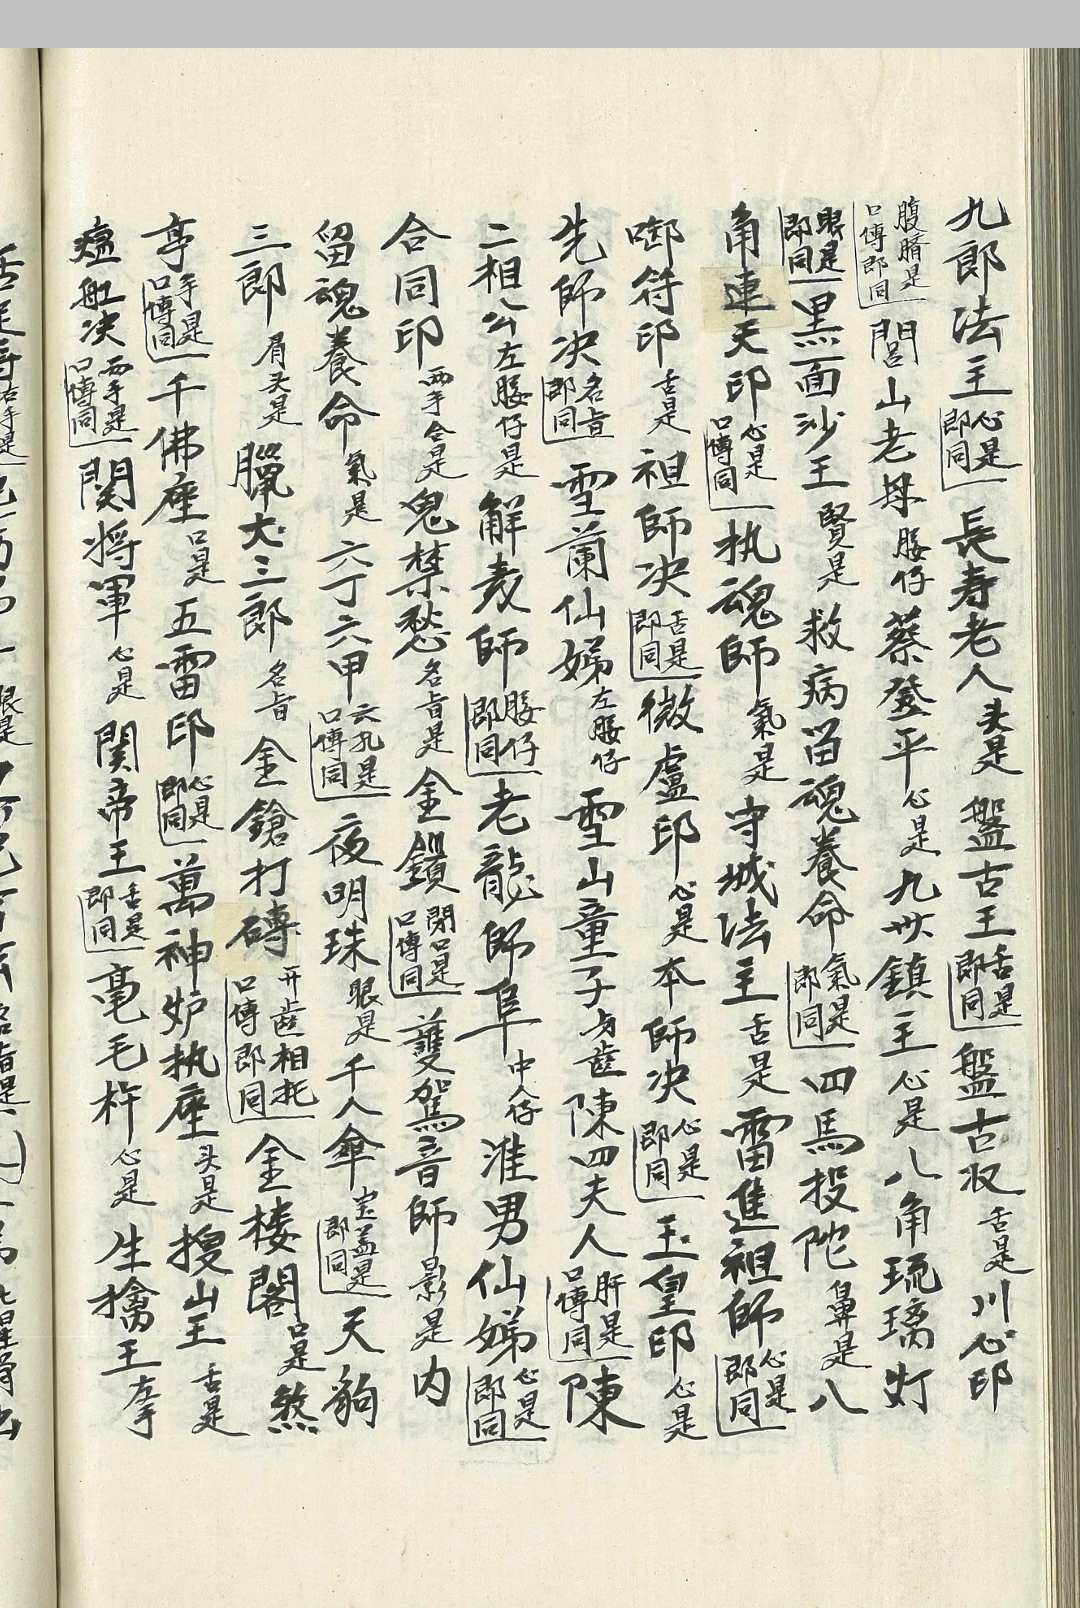 九郎法主心是即同長寿老人头是盤古王舌是即同盤古奴舌是川心印
腹臍是口傳即同閭山老母腰仔蔡登平心是九世鎮主心是八角琉璃灯
眼是即同黑面沙王賢是救病留魂養命氣是即同四馬投陀鼻是八
角連天印心是口傳同执魂師氣是守城法主舌是雷進祖師心是即同
啣符印舌是祖師决舌是即同微盧印心是本師决心是即同玉皇印心是
先師决名旨即同雪蘭仙娣左腰仔雪山童子齒陳四夫人肝是口傳同陳
二相公左腰仔是解教師腰仔即同老龍師阜中人仔淮男仙娣心是即同
合同印两手合是鬼禁愁名旨是金鎖閉口是口傳同護駕音師影是内
留魂養命氣是六丁六甲六孔是口傳同夜明珠眼是千人傘宝盖是即同天狗
三郎眉头是臘犬三郎名旨金鎗打磚开齒相托口傳即同金楼閣口是煞
亭手是口傳同千佛座口是五雷印心是即同萬神妒执座头是搜山王舌是
瘟舡决两手是口傳同関将軍心是関帝王舌是即同毫毛杵心是生擒王左手